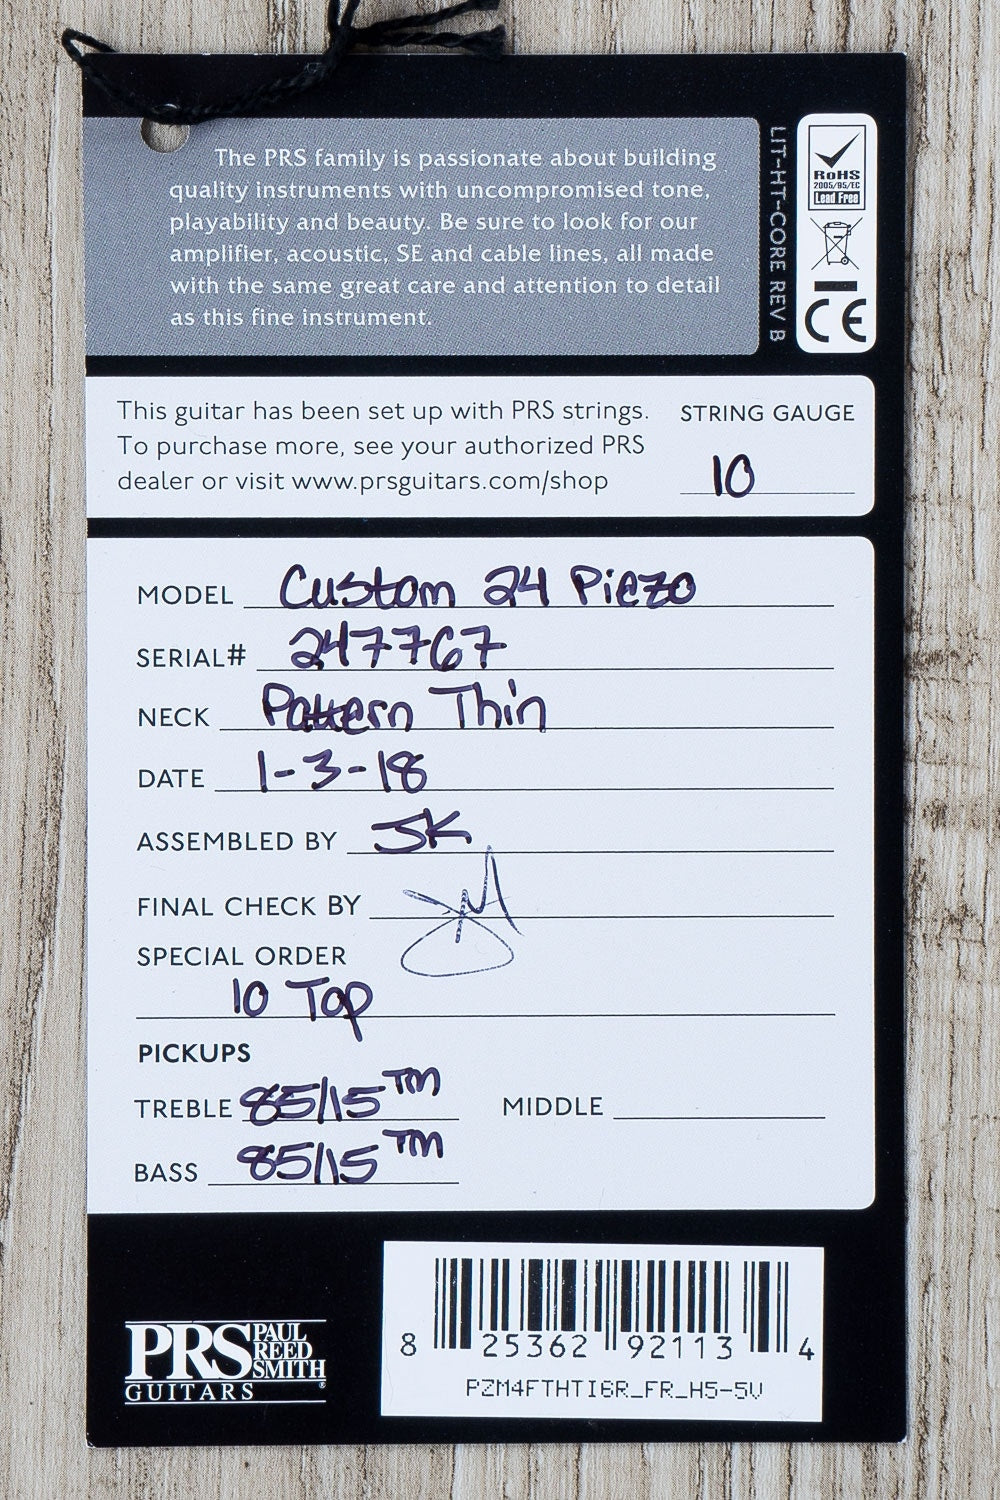 The PRS family is passionate about building
quality instruments with uncompromised tone,
playability and beauty. Be sure to look for our
amplifier, acoustic, SE and cable lines, all made
with the same great care and attention to detail
as this fine instrument.
LIT-HT-CORE REV B
RoHS
2005/95/EC
Lead Free
CE
This guitar has been set up with PRS strings.
To purchase more, see your authorized PRS
dealer or visit www.prsguitars.com/shop
STRING GAUGE
10
MODEL Custom 24 Piezo
SERIAL# 247767
NECK Pattern Thin
DATE 1-3-18
ASSEMBLED BY JK
FINAL CHECK BY
SPECIAL ORDER
10 Top
PICKUPS
TREBLE 85/15™ MIDDLE
BASS 85/15™
PRS PAUL REED SMITH
GUITARS®
8 25362 92113 4
PZM4FTHTI6R_FR_H5-5V